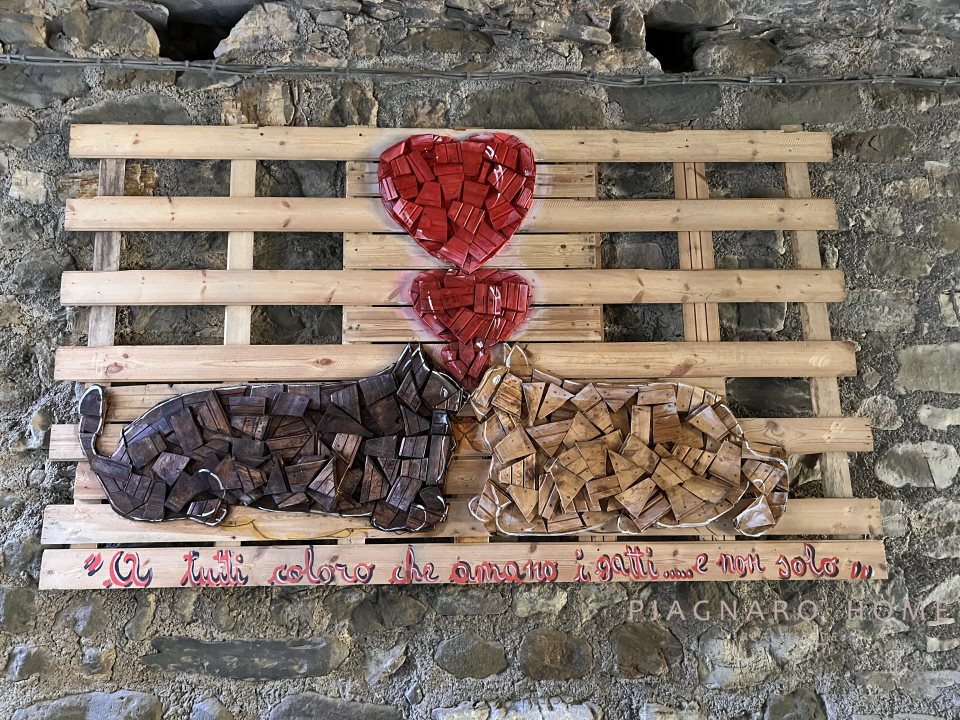 "A tutti coloro che amano i gatti.....e non solo"
PIAGNARO HOME